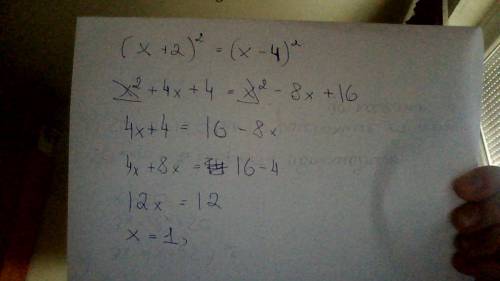 (x+2)² = (x-4)²
x² + 4x + 4 = x² - 8x + 16
4x+4 = 16 - 8x
4x+8x = 16-4
12x = 12
x = 1,